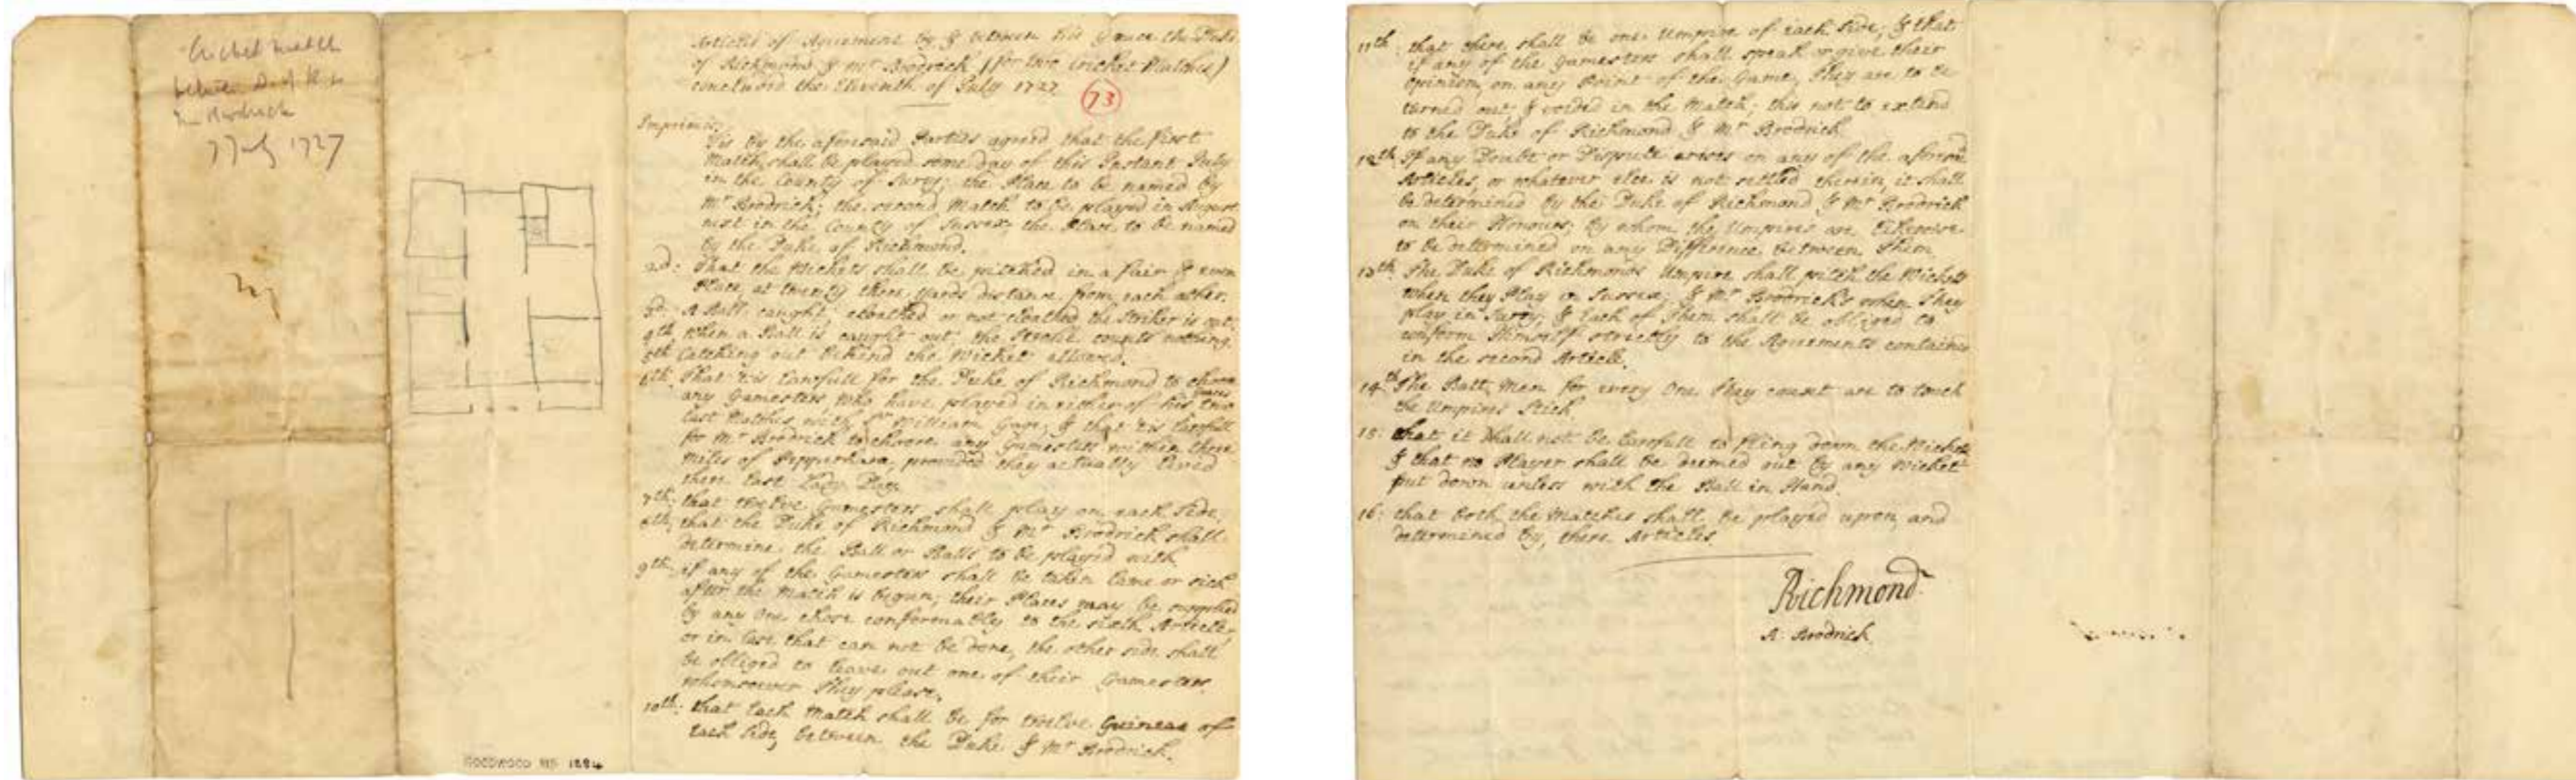 Cricket match
between D. of R &
Mr Brodrick
July 1727
Articles of Agreement by & between his Grace the Duke
of Richmond & Mr Brodrick (for two Cricket Matches)
concluded the Eleventh of July 1727
73
Imprimis
'Tis by the aforesaid Parties agreed that the first
Match shall be played some day of this Instant July
in the County of Surry; the Place to be named by
Mr Brodrick; the second Match to be played in August
next in the County of Sussex; the Place to be named
by the Duke of Richmond.
2d: That the Wickets shall be pitched in a fair & even
Place, at twenty three yards distance from each other.
3d: A Ball caught, cloathed or not cloathed the Striker is out.
4th When a Ball is caught out, the Stroke counts nothing.
5th Catching out behind the Wicket allowed.
6th That 'tis Lawfull for the Duke of Richmond to choose
any Gamesters who have played in either of his Graces two
last Matches with Sr William Gage; & that 'tis Lawfull
for Mr Brodrick to choose any Gamesters within three
Miles of Pepperhara, provided they actually lived
there last Lady Day.
7th: that twelve Gamesters shall play on each side.
8th: that the Duke of Richmond & Mr Brodrick shall
determine the Ball or Balls to be played with.
9th: if any of the Gamesters shall be taken lame or sick
after the Match is begun, their Places may be supplied
by any One chose conformably to the sixth Article,
or in Case that can not be done, the other side shall
be obliged to leave out one of their Gamesters
whomsoever they please.
10th: that each Match shall be for twelve Guineas of
each Side, between the Duke & Mr Brodrick.
GOODWOOD MS 1884
11th: that there shall be one Umpire of each Side; & that
if any of the Gamesters shall speak or give their
Opinion, on any Point of the Game, they are to be
turned out, & voided in the Match; this not to extend
to the Duke of Richmond & Mr Brodrick
12th If any Doubt or Dispute arises on any of the aforesd
Articles, or whatever else is not settled therein, it shall
be determined by the Duke of Richmond & Mr Brodrick
on their Honours; by whom the Umpires are likewise
to be determined on any Difference between Them
13th The Duke of Richmonds Umpire shall pitch the Wickets
when they Play in Sussex; & Mr Brodricks when they
play in Surry; & Each of Them shall be obliged to
conform Himself strictly to the Agreements contained
in the second Article.
14th The Batt Men for every One they count are to touch
the Umpires Stick
15: that it shall not be Lawfull to fling down the Wickets
& that no Player shall be deemed out by any Wicket
put down unless with the Ball in Hand.
16: that both the Matches shall be played upon, and
determined by, these Articles.
Richmond
A. Brodrick